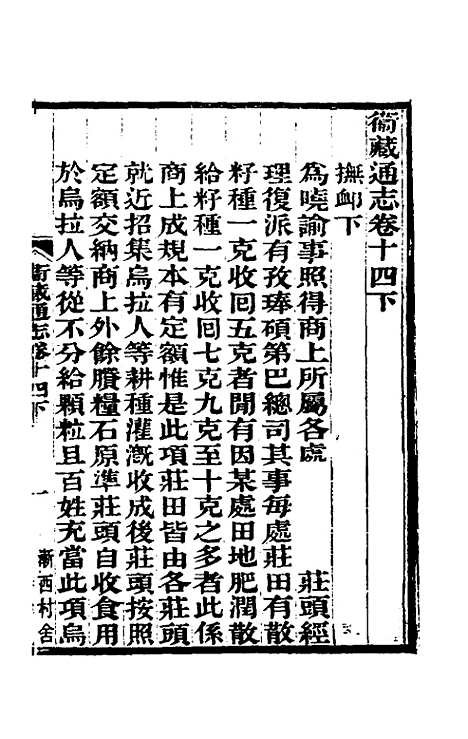 衞藏通志卷十四下
撫卹下
爲曉諭事照得商上所屬各處　　莊頭經
理復派有孜琫碩第巴總司其事每處莊田有散
籽種一克收回五克者閒有因某處田地肥潤散
給籽種一克收回七克九克至十克之多者此係
商上成規本有定額惟是此項莊田皆由各莊頭
就近招集烏拉人等耕種灌漑收成後莊頭按照
定額交納商上外餘賸糧石原準莊頭自收食用
於烏拉人等從不分給顆粒且百姓充當此項烏
衞藏通志卷十四下　一　漸西村舍